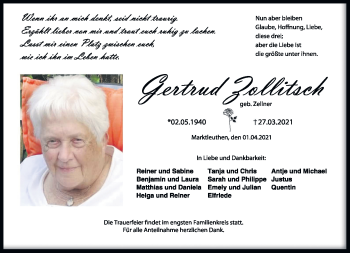 Wenn ihr an mich denkt, seid nicht traurig.
Erzählt lieber von mir und traut euch ruhig zu lachen.
Lasst mir einen Platz zwischen euch,
wie ich ihn im Leben hatte.
Nun aber bleiben
Glaube, Hoffnung, Liebe,
diese drei;
aber die Liebe ist
die größte unter ihnen.
Gertrud Zollitsch
geb. Zellner
*02.05.1940 †27.03.2021
Marktleuthen, den 01.04.2021
In Liebe und Dankbarkeit:
Reiner und Sabine Tanja und Chris Antje und Michael
Benjamin und Laura Sarah und Philippe Justus
Matthias und Daniela Emely und Julian Quentin
Helga und Reiner Elfriede
Die Trauerfeier findet im engsten Familienkreis statt.
Für alle Anteilnahme herzlichen Dank.